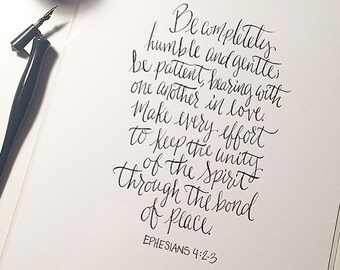 Be completely
humble and gentle;
be patient, bearing with
one another in love.
Make every effort
to keep the unity
of the Spirit
through the bond
of peace.
EPHESIANS 4:2-3